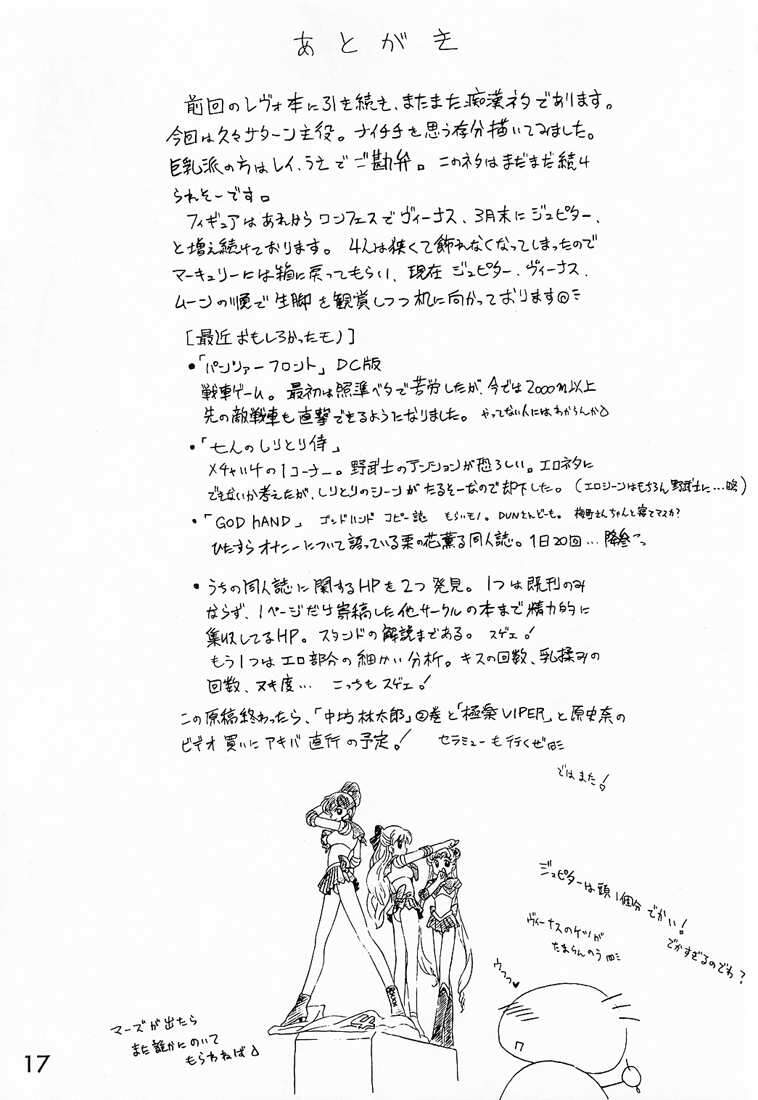 あとがき
前回のレヴォ本に引き続き、またまた痴漢ネタであります。
今回は久々サターン主役。ナイチチを思う存分描いてみました。
巨乳派の方はレイ、うえでご勘弁。このネタはまだまだ続け
られそーです。
フィギュアはあれからワンフェスでヴィーナス、3月末にジュピター、
と増え続けております。4人は狭くて飾れなくなってしまったので
マーキュリーには箱に戻ってもらい、現在ジュピター、ヴィーナス、
ムーンの順で生脚を観賞しつつ机に向かっております
[最近おもしろかったモノ]
・「パンツァーフロント」DC版
戦車ゲーム。最初は照準ベタで苦労したが、今では2000m以上
先の敵戦車も直撃できるようになりました。やってない人にはわからんか
・「七人のしりとり侍」
メチャイケの1コーナー。野武士のテンションが恐ろしい。エロネタに
できないか考えたが、しりとりのシーンがたるそーなので却下した。(エロシーンはもちろん野武士に…略)
・「GOD HAND」 ゴッドハンド コピー誌 もらいモノ。DUNさんどーも。
ひたすらオナニーについて語っている栗の花薫る同人誌。1日20回…降参
・うちの同人誌に関するHPを2つ発見。1つは既刊のみ
ならず、1ページだけ寄稿した他サークルの本まで精力的に
集収してるHP。スタンドの解説まである。スゲェ!
もう1つはエロ部分の細かい分析。キスの回数、乳揉みの
回数、ヌキ度… こっちもスゲェ!
この原稿終わったら、「中坊林太郎」②巻と「極楽VIPER」と原史奈の
ビデオ買いにアキバ直行の予定! セラミューも行くぜ
ではまた!
ジュピターは頭1個分でかい!
でかすぎるのでわ?
ヴィーナスのケツが
たまらんのう
ウフッ♥
マーズが出たら
また誰かにのいて
もらわねば
17